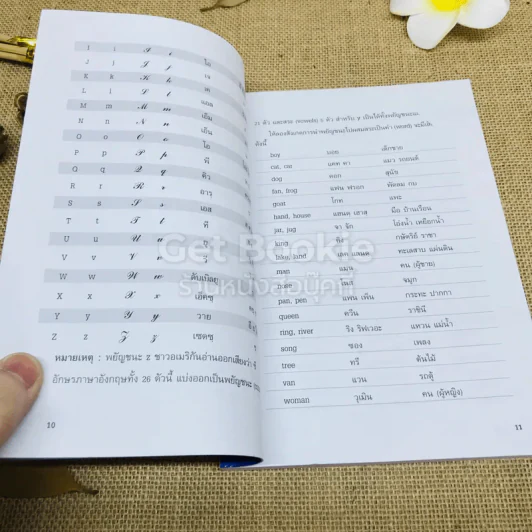 I i I i ไอ
J j J j เจ
K k K k เค
L l L l แอล
M m M m เอ็ม
N n N n เอ็น
O o O o โอ
P p P p พี
Q q Q q คิว
R r R r อาร
S s S s เอส
T t T t ที
U u U u ยู
V v V v วี
W w W w ดับเบิลยู
X x X x เอ็คซ
Y y Y y วาย
Z z Z z เซด
หมายเหตุ : พยัญชนะ z ชาวอเมริกันอ่านออกเสียงว่า
อักษรภาษาอังกฤษทั้ง 26 ตัวนี้ แบ่งออกเป็นพยัญชนะ
10
21 ตัว และสระ (vowels) 5 ตัว สำหรับ y เป็นได้ทั้งพยัญชนะ
ดังนี้
boy บอย เด็กชาย
cat, car แคท คา แมว รถยนต์
dog ดอก สุนัข
fan, frog แฟน ฟรอก พัดลม กบ
goat โกท แพะ
hand, house แฮนด เฮาส มือ บ้านเรือน
jar, jug จา จัก โอ่งน้ำ เหยือกน้ำ
king คิง กษัตริย์ ราชา
lake, land เลค แลนด ทะเลสาบ แผ่นดิน
man แมน คน (ผู้ชาย)
nose โนส จมูก
pan, pen แพน เพ็น กระทะ ปากกา
queen ควีน ราชินี
ring, river ริง ริฟเวอะ แหวน แม่น้ำ
song ซอง เพลง
tree ทรี ต้นไม้
van แวน รถตู้
woman วูเมิน คน (ผู้หญิง)
11
Get Bookie
ร้านหนังสือบุ๊คกี้